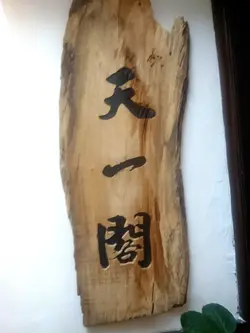 天一閣